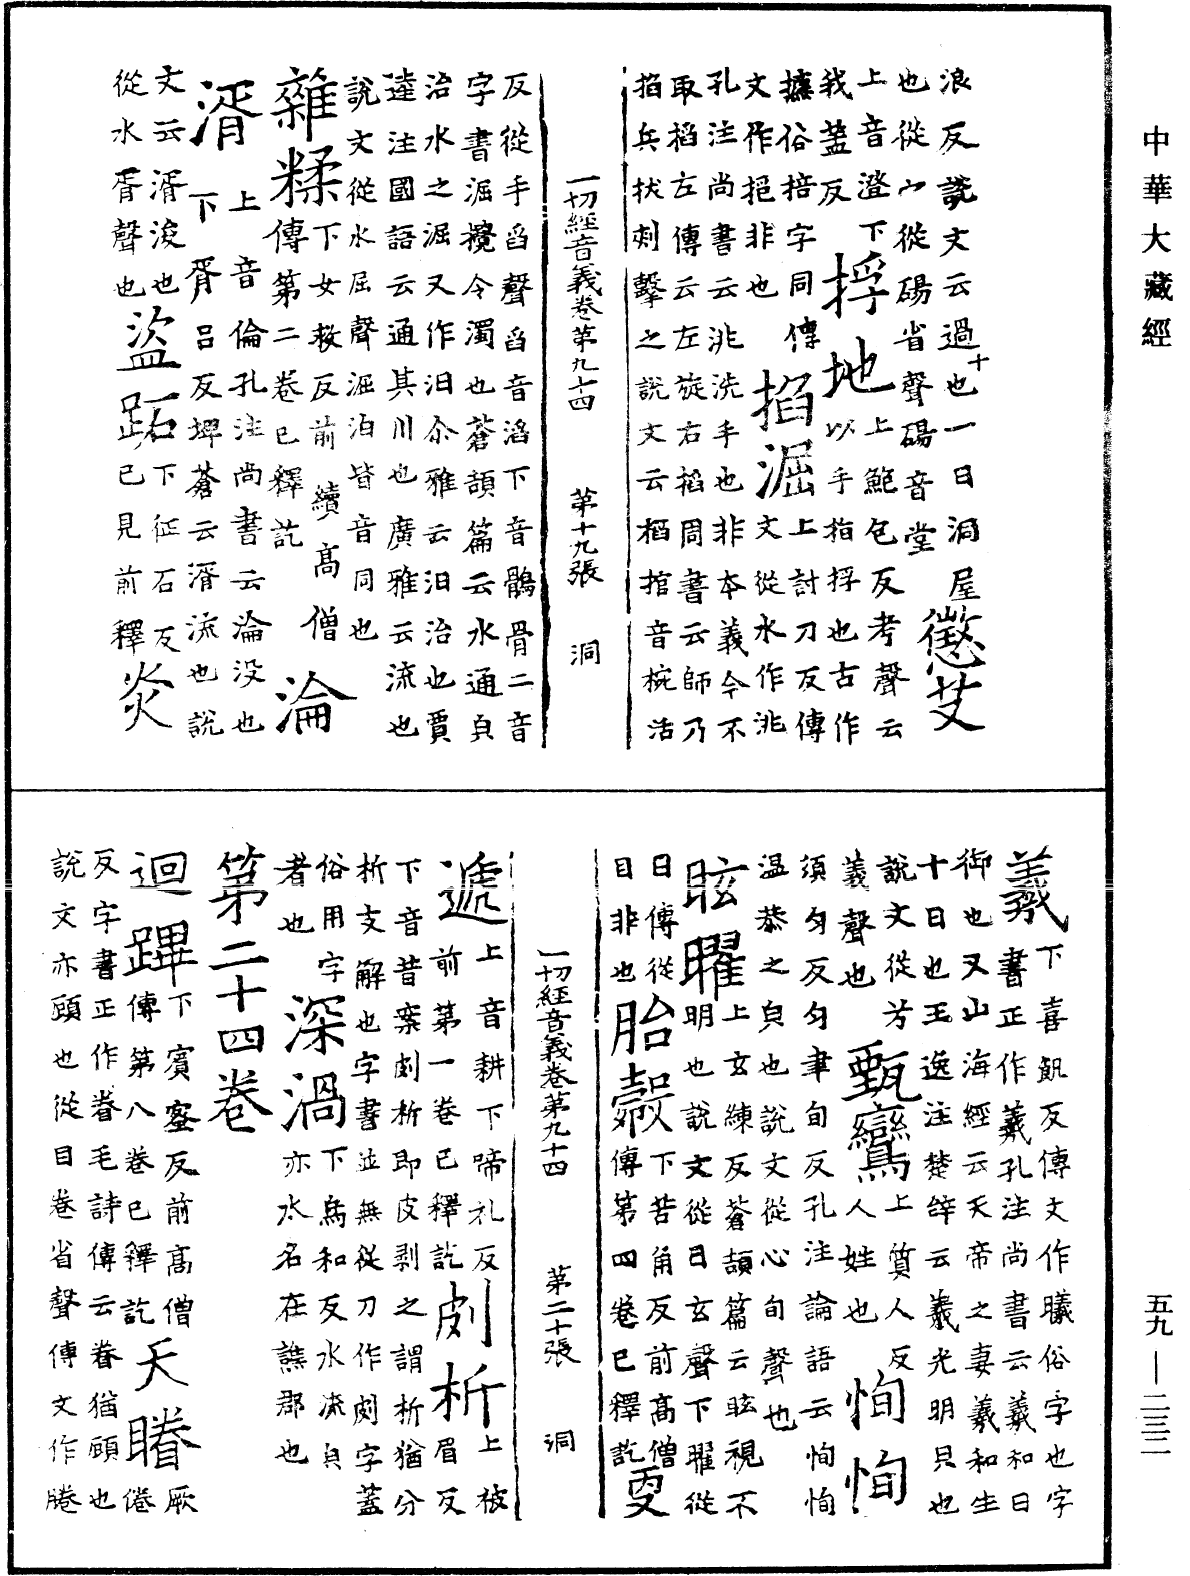 中華大藏經
浪反說文云過也一曰洞屋懲艾
也從山從碭省聲碭音堂
上音澄下捊地上鮑包反考聲云
我蓋反以手指捊也古作
攎俗掊字同傳掐淈上討刀反傳
文作挹非也文從水作洮
孔注尚書云洮洗手也非本義今不
取掐左傳云左旋右掐周書云師乃
掐兵拔刺擊之說文云掐捾音椀活
一切經音義卷第九十四 第十九張 洞
反從手舀聲舀音滔下音鶻骨二音
字書淈攪令濁也蒼頡篇云水通皃
治水之淈又作汩尒雅云汩治也賈
逵注國語云通其川也廣雅云流也
說文從水屈聲淈汩皆音同也
雜糅下女救反前續高僧
傳第二卷已釋訖淪
湑上音倫孔注尚書云淪没也
下胥呂反埤蒼云湑流也說
文云湑浚也盜跖下征石反
從水胥聲也已見前釋炎
羲下喜飢反傳文作曦俗字也字
書正作羲孔注尚書云羲和日
御也又山海經云天帝之妻羲和生
十日也王逸注楚辞云羲光明皃也
說文從芳甄鸞上質人反
義聲也人姓也恂恂
須匀反匀聿旬反孔注論語云恂恂
温恭之皃也說文從心旬聲也
眩曜上玄練反蒼頡篇云眩視不
明也說文從目玄聲下曜從
日傳從胎㲉下苦角反前高僧
目非也傳第四卷已釋訖㪅
一切經音義卷第九十四 第二十張 洞
遞上音耕下啼礼反劇析上被眉反
前第一卷已釋訖
下音昔案劇析即皮剥之謂析猶分
析支解也字書並無從刀作劇字蓋
俗用字深渦下烏和反水流皃
者也亦水名在譙郡也
第二十四卷
迴踔下賓蜜反前高僧天睠厥
傳第八卷已釋訖倦
反字書正作眷毛詩傳云眷猶顧也
說文亦顧也從目卷省聲傳文作睠
五九—二三二